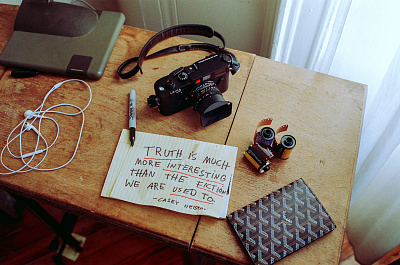 TRUTH IS MUCH
MORE INTERESTING
THAN THE FICTION
WE ARE USED TO.
-CASEY